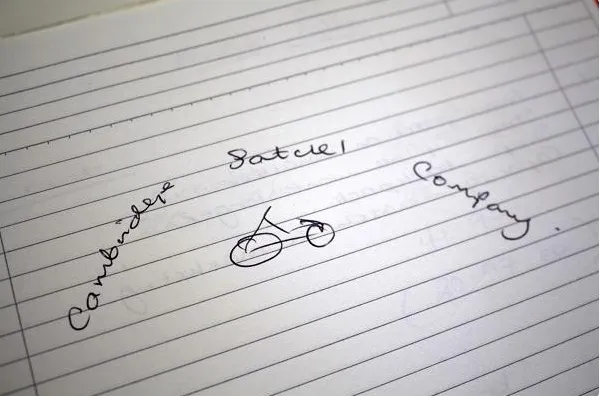 Cambridge Satchel Company.